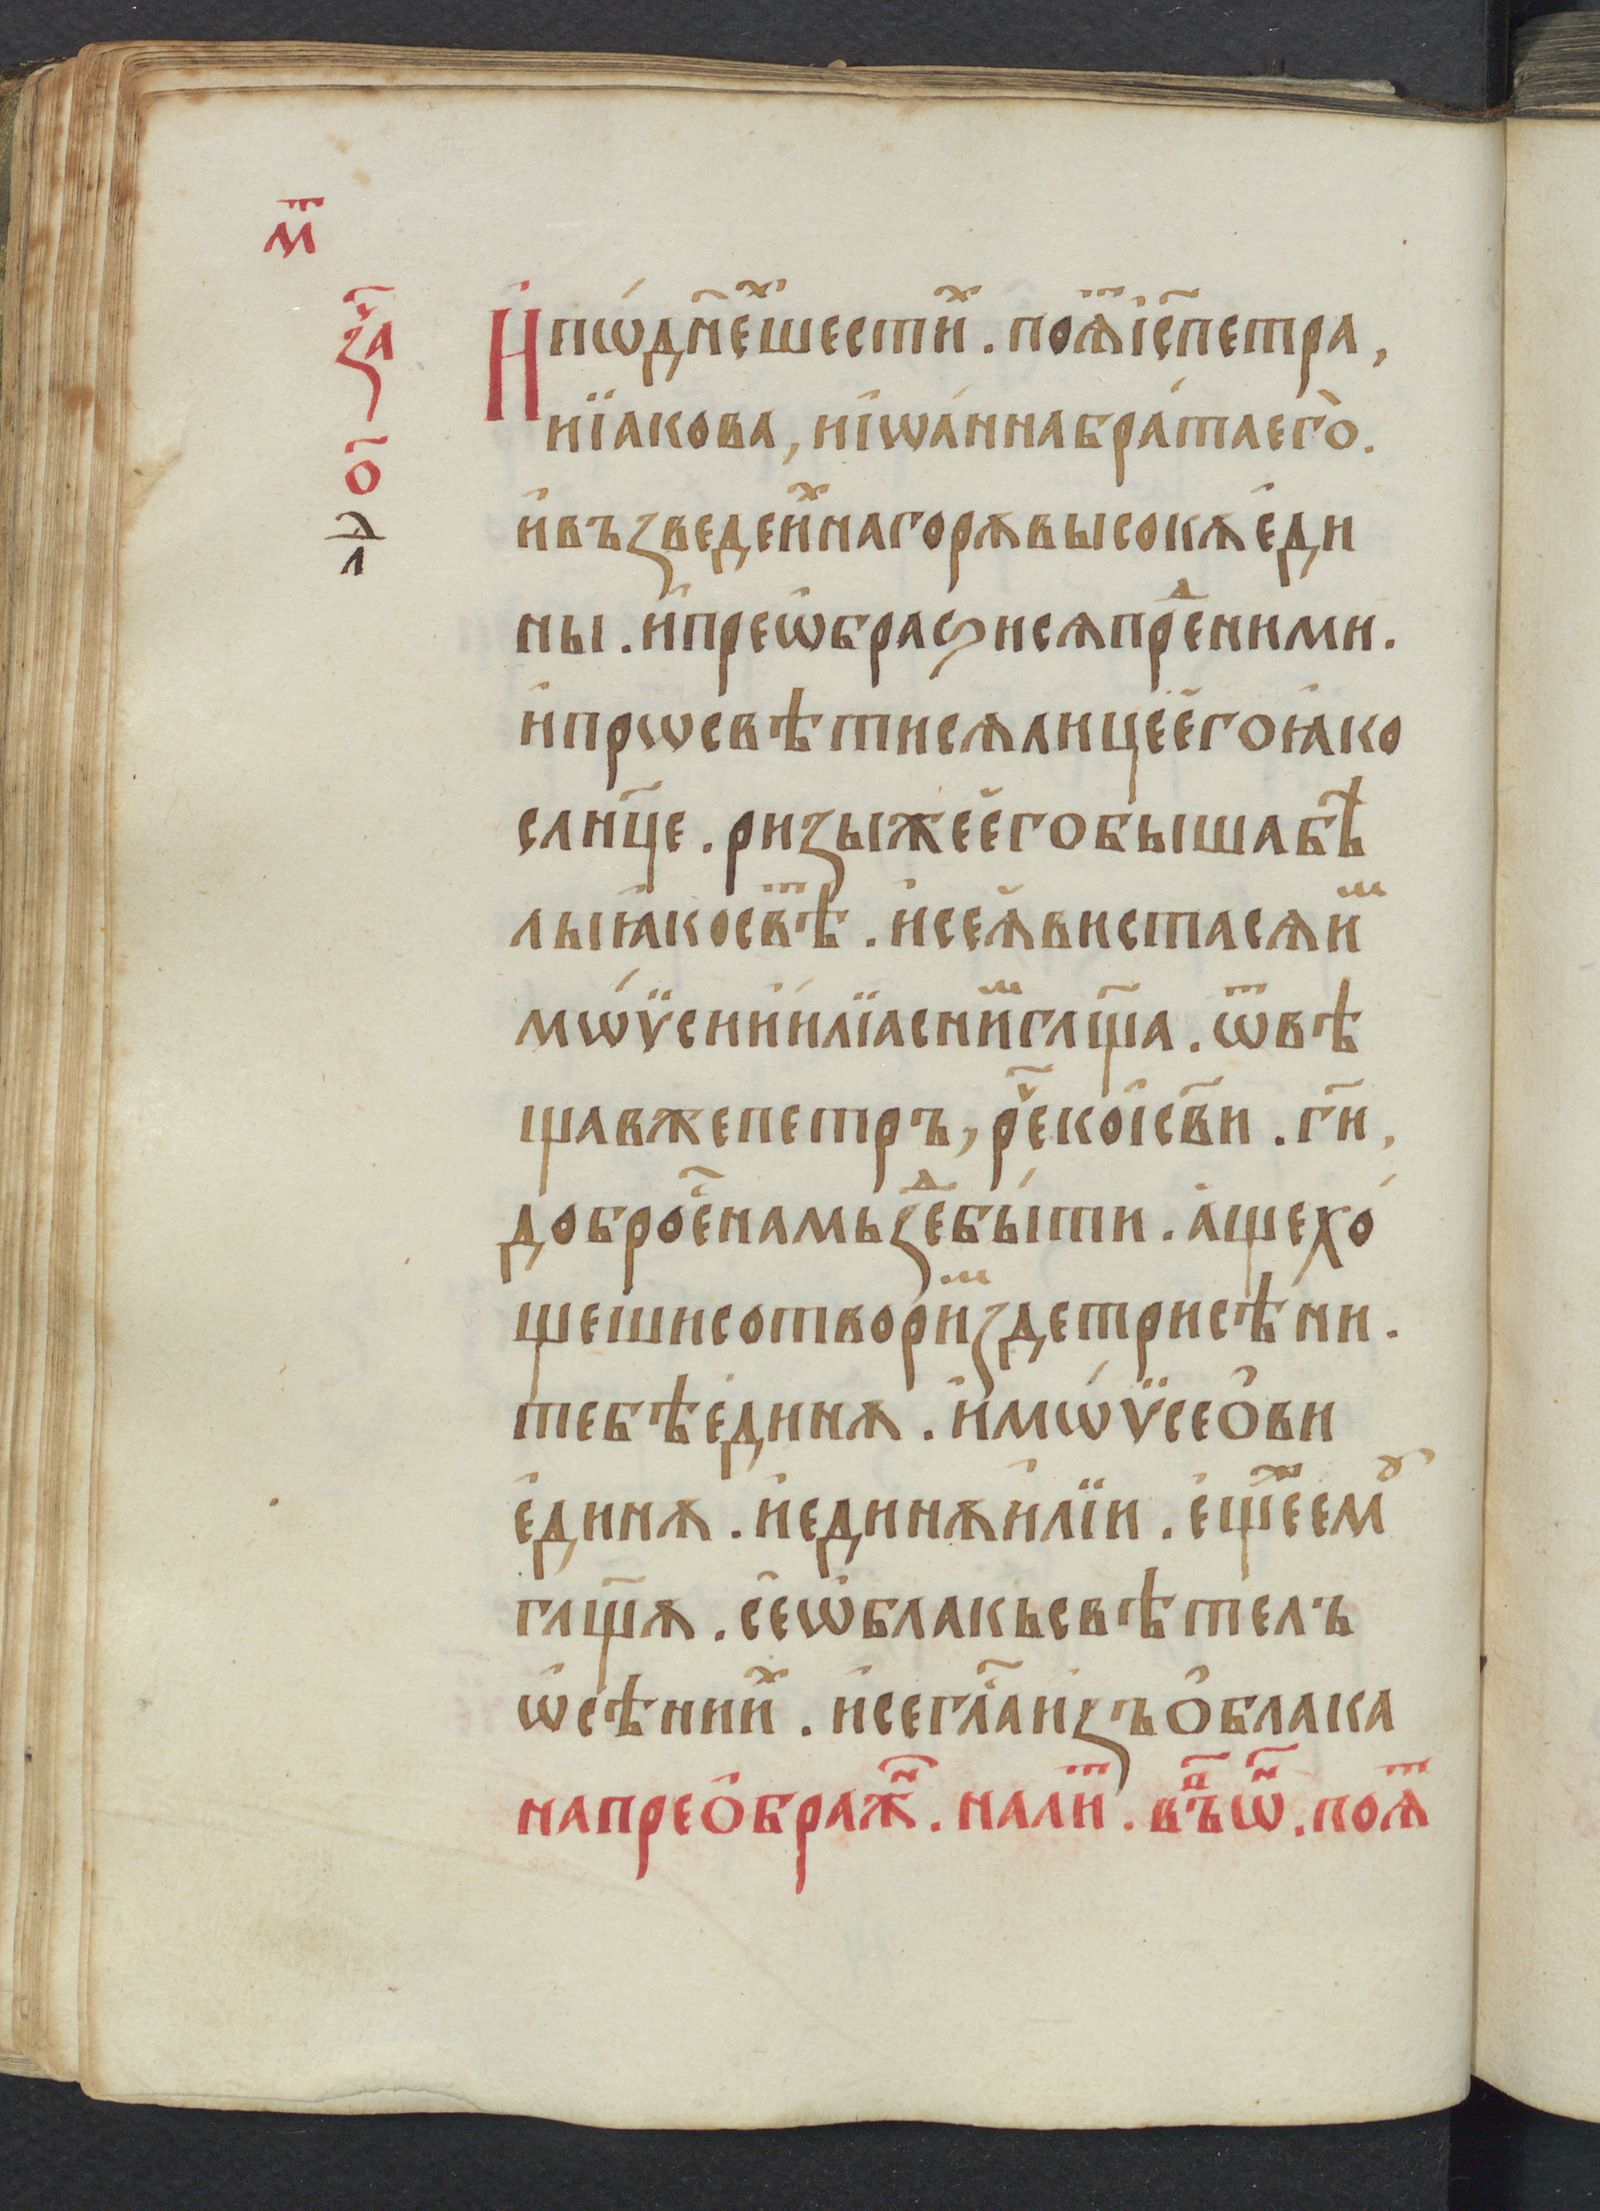 мⷮ
заⷱ҇
о҃
д҃
л
И҆ пѡ́ дн҃еⷯ шестиⷯ . поѧⷮ і҆с҃ петра ,
и їакова , и і҆ѡа́нна бра́та его̀ .
и҆ възведе иⷯ на горѧ высокѧ е҆ди
ны . и҆ преѡ҆браѕи сѧ преⷣ ними .
и҆ прѡсвѣти сѧ лице е҆го ꙗ҆ко
слн҃це . ризы же е҆го быша бѣ
лы ꙗ҆ко свѣⷮ . и҆ се ꙗ҆вистасѧ иⷨ
мѡ́ѷси и҆ и҆лїа с ниⷨ гл҃ща . ѿвѣ
щав же петръ , реⷱ҇ ко і҆св҃и . гн҃ ,
добро еⷭ҇ намь зⷣе бы́ти . а҆ще хо́
щеши сотвориⷨ зде три сѣни .
тебѣ е҆динѧ . и҆ мѡ́ѷсео҆ви
е҆динѧ . и҆ единѧ и҆лїи . е҆щеⷤ емꙋ
гл҃щѧ . се ѡ҆блакь свѣтелъ
ѡ҆сѣни иⷯ . и҆ се глⷭ҇а изъ о҆блака
на прео҆бражⷩ҇ . на лиⷮ . въⷭ҇пⷬ ѡⷩ҇ . поѧⷮ